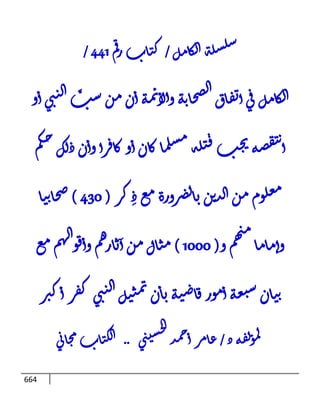 سلسلة الكامل / كتاب رقم 441 /
الكامل في اتفاق الصحابة والأئمة أن من سبّ النبي أو
انتقصه يجب قتله مسلما كان أو كافرا وأن ذلك حكم
معلوم من الدين بالضرورة مع ذِكر ( 430 ) صحابيا
وإماما منهم و( 1000 ) مثال من آثارهم وأقوالهم مع
بيان سبعة أمور قاضية بأن تمثيل النبي كفر أكبر
لمؤلفه د / عامر أحمد الحسيني .. الكتاب مجاني
664